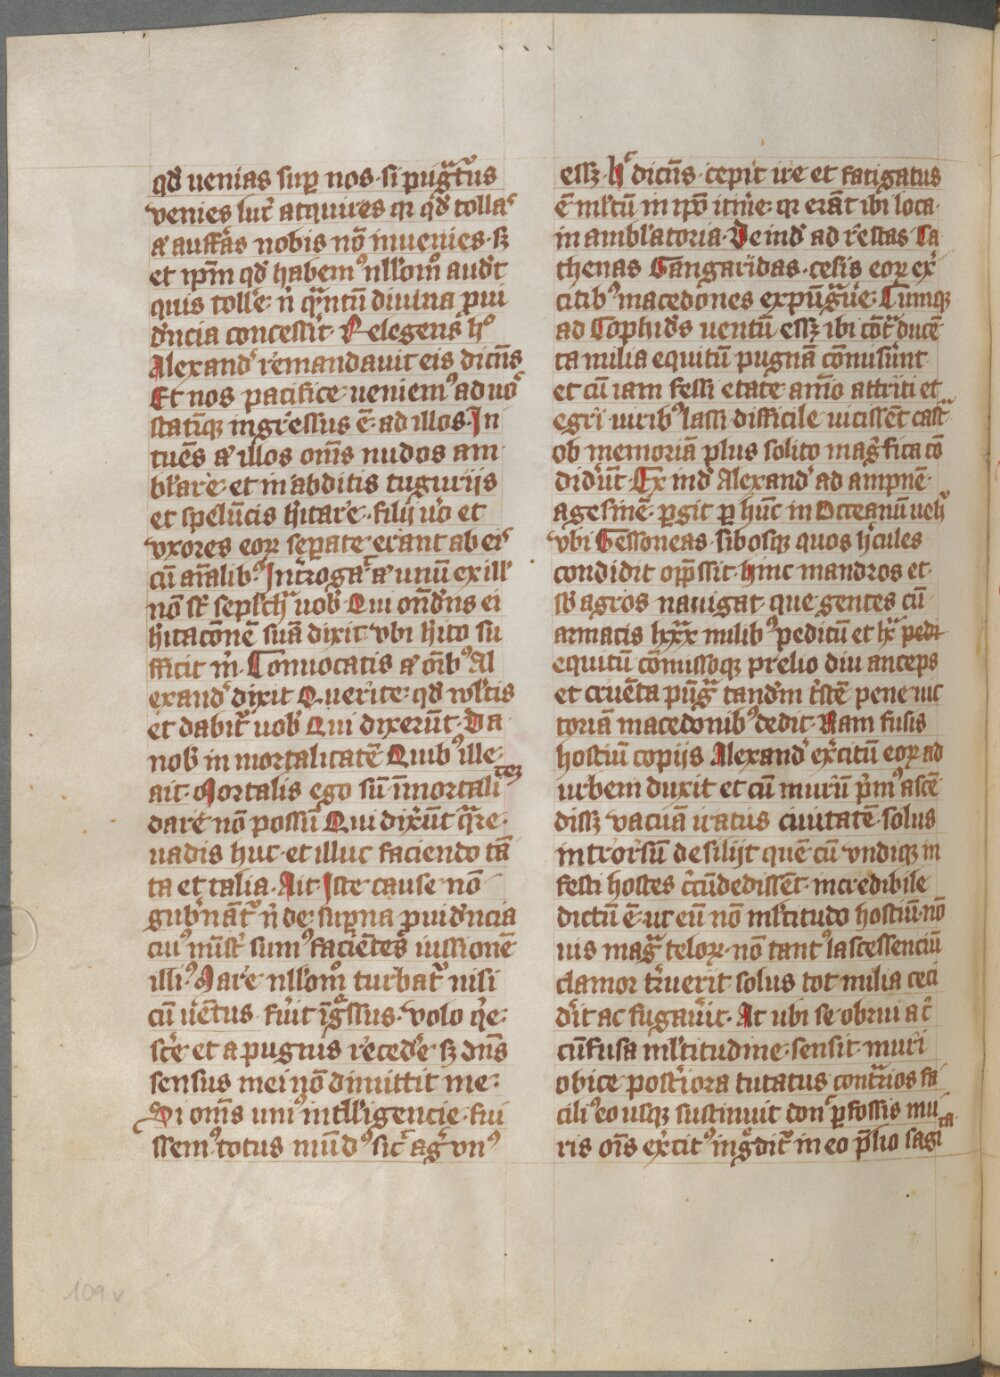 qd̄ uenias suꝑ nos · si pugᷓtus
venies luc̄ atquires qr qd̄ tollaˢ
a auffās nobis nō inuenies · sꝫ
et ipm̄ qd̄ habemꝰ nllom̄ aud̄t
quis tolle᷑ n̄ qᷓntū diuina p̄ui
d̄ncia concessit · Relegens hͦ
Alexand᷑ remandauit eis dicn̄s
Et nos pacifice ueniemꝰ ad uoˢ
statīqꝫ ingressus ē · ad illos · In
tuēs a illos om̄s nudos am
blare · et in abditis tugurijs
et spelūcis hītare · filij uo᷑ et
vxores eoꝝ seꝑate erant ab eiˢ
cū aīalibꝰ · Int᷑rogaˢ a unū ex ill᷑
nō st̄ seplchᷓ uob᷑ Qui ond̄ns ei
hitacōnē suā dixit · vbi hito su
fficit m̄ · Conuocatis a oībꝰ Al
exand᷑ dixit Querite · qd̄ wltis
et dabit᷑ uob᷑ Qui dixerūt · Da
nob᷑ inmortalitatē Quibꝰ ille ·
ait · Mortalis ego sū · īmortalitꝫ
dare nō possū Qui dixūt qᷓre ·
uadis huc · et illuc faciendo tā
ta et talia · Ait · Iste cause nō
gub᷑nāt᷑ n̄ de · suꝑna p̄uid̄ncia
cuiꝰ mīst᷑ sumꝰ faciētes iussionē
illiꝰ · Mare nllom̄ turbat᷑ nisi
cū uētus fuit īgᷓssus · volo qe᷑ ·
sce᷑ et a pugnis reced᷑e sꝫ dn̄s
sensus mei nō dimittit me ·
Si om̄s uniꝰ intll᷑igencie · fui
ssemꝰ totus mūdꝰ sic̄ ag᷑ vnꝰ
essꝫ · hͨ dicn̄s · cepit ire et fatigatus
ē mltū in ip̄o itīe · qr erāt ibi loca ·
inamblatoria · Deind᷑ ad restas Ca
thenas Gangaridas · cesis eoꝝ ex᷑
citibꝰ macedones expūgᷓue᷑ · Cumqꝫ
ad Cophid᷑s uentū essꝫ ibi cōtᷓ ducē
ta milia equitū pugnā cōmus᷑int
et cū iam fessi etate · aīo attriti et
egri uiribꝰ lassi · difficile uicissēt cast᷑
ob memoriā plus solito mag᷑fica cō
did᷑ūt · Ex ind᷑ Alexand᷑ ad ampnē ·
agesinē · ꝑgit ꝑ hūc in Occeanū uehᷓ
vbi Gessoneas · sibosqꝫ quos h᷑cules
condidit opp᷑ssit · hinc mandros et ·
sb᷑ agros nauigat · que gentes cū ·
armatis lxxx milibꝰ peditū et lx᷑ pedi
equitū cōmissoqꝫ prelio diu anceps
et cruēta pūgᷓ tand᷑m t᷑stē pene uic
toriā macedonibꝰ dedit · Nam fusis
hostiū copijs Alexand᷑ ex᷑citū eoꝝ ad
urbem duxit et cū murū p᷑mꝰ ascē
dissꝫ vacuā iratus ciuitatē · solus
introrsū desilijt quē cū vndiqꝫ in
festi hostes c᷑cūdedissēt · incredibile
dictū ē · ut eū nō mltitudo hostiū · nō
uis magᷓ teloꝝ · nō tantꝰ lascessenciū
clamor t᷑ruerit solus tot milia ceci
d᷑it ac fugau᷑it · At ubi se obrui at᷑
cūfusa mltitudine · sensit · muri
obice post᷑iora tutatus contᷓrios fa
ciliꝰ eo usqꝫ sustinuit don᷑ ꝑfossis mu
ris oīs ex᷑citꝰ ingᷓdit᷑ in eo p᷑lio sagita
109v